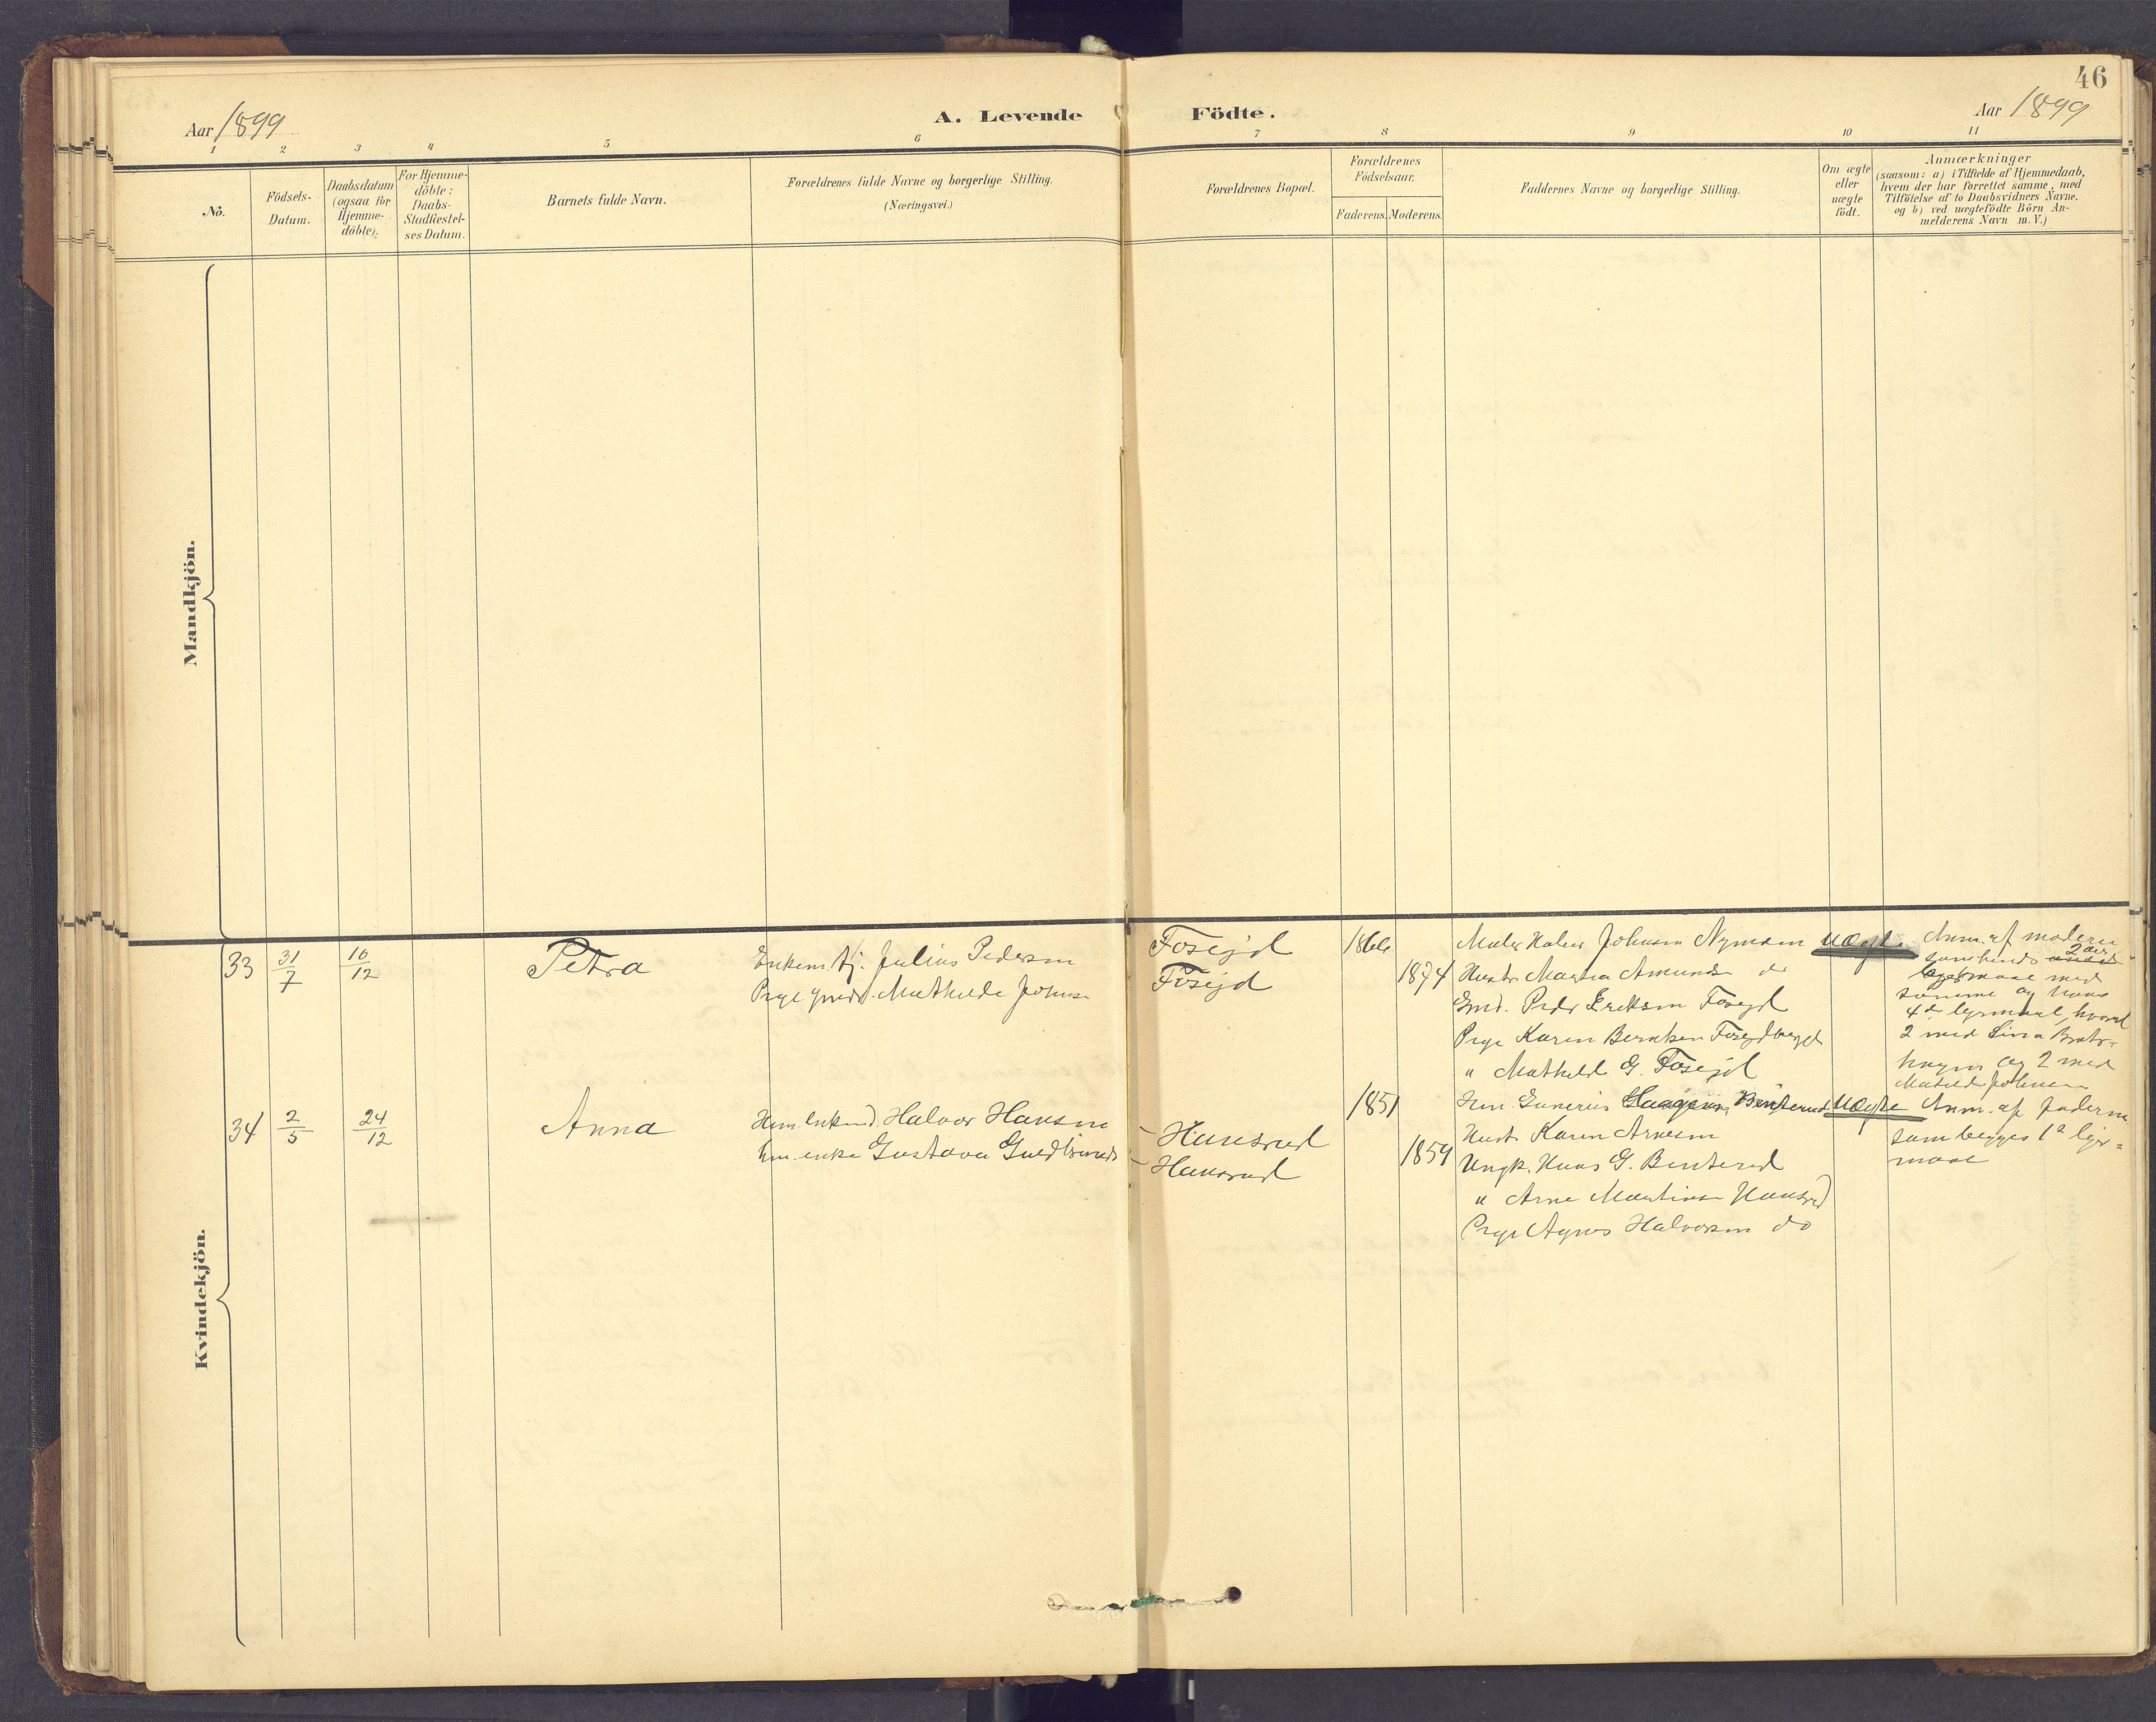 46
Aar 1899
A. Levende Födte.
Aar 1899
1 2 3 4 5 6 7 8 9 10 11
No.
Födsels-
Datum.
Daabsdatum
(ogsaa for
Hjemme-
döbte).
For Hjemme-
döbte:
Daabs-
Stadfæstel-
ses Datum.
Barnets fulde Navn.
Forældrenes fulde Navne og borgerlige Stilling.
(Næringsvei.)
Forældrenes Bopæl.
Forældrenes
Födselsaar.
Faderens.
Moderens.
Faddernes Navne og borgerlige Stilling.
Om ægte
eller
uægte
födt.
Anmærkninger
(saasom: a) i Tilfælde af Hjemmedaab,
hvem der har forrettet samme, med
Tilföielse af to Daabsvidners Navne,
og b) ved uægtefödte Börn An-
melderens Navn m.V.)
Mandkjön.
Kvindekjön.
33
31/7
16/12
Petra
Enkem. Julius Pedersen
Pige Mathilde Johns
Fosejd
Fosejd
1866
1874
Maler Johnsen Nymoen
Hustr Martha Amunds do
Gmd. Peder Eriksen Fosejd
Pige Karen Berntsen
" Mathilde G. Fosejd
Uægte
Anm. af moderen
2den
med
samme og hans
4de leiermaal, hvoraf
2 med
og 2 med
Mathilde Johnsen
34
2/5
24/12
Anna
Halvor Hansen
enke Gustava Guldbrands
- Hansrud
- Hansrud
1851
1859
Gunerius Haagens Benterud
Hustr Karen Arnesen
Ungk. Hans G. Benterud
" Arne Martinsen Hansrud
Pige Agnes Halvorsen do
Uægte
Anm. af faderen
som begges 1ste leier-
maal